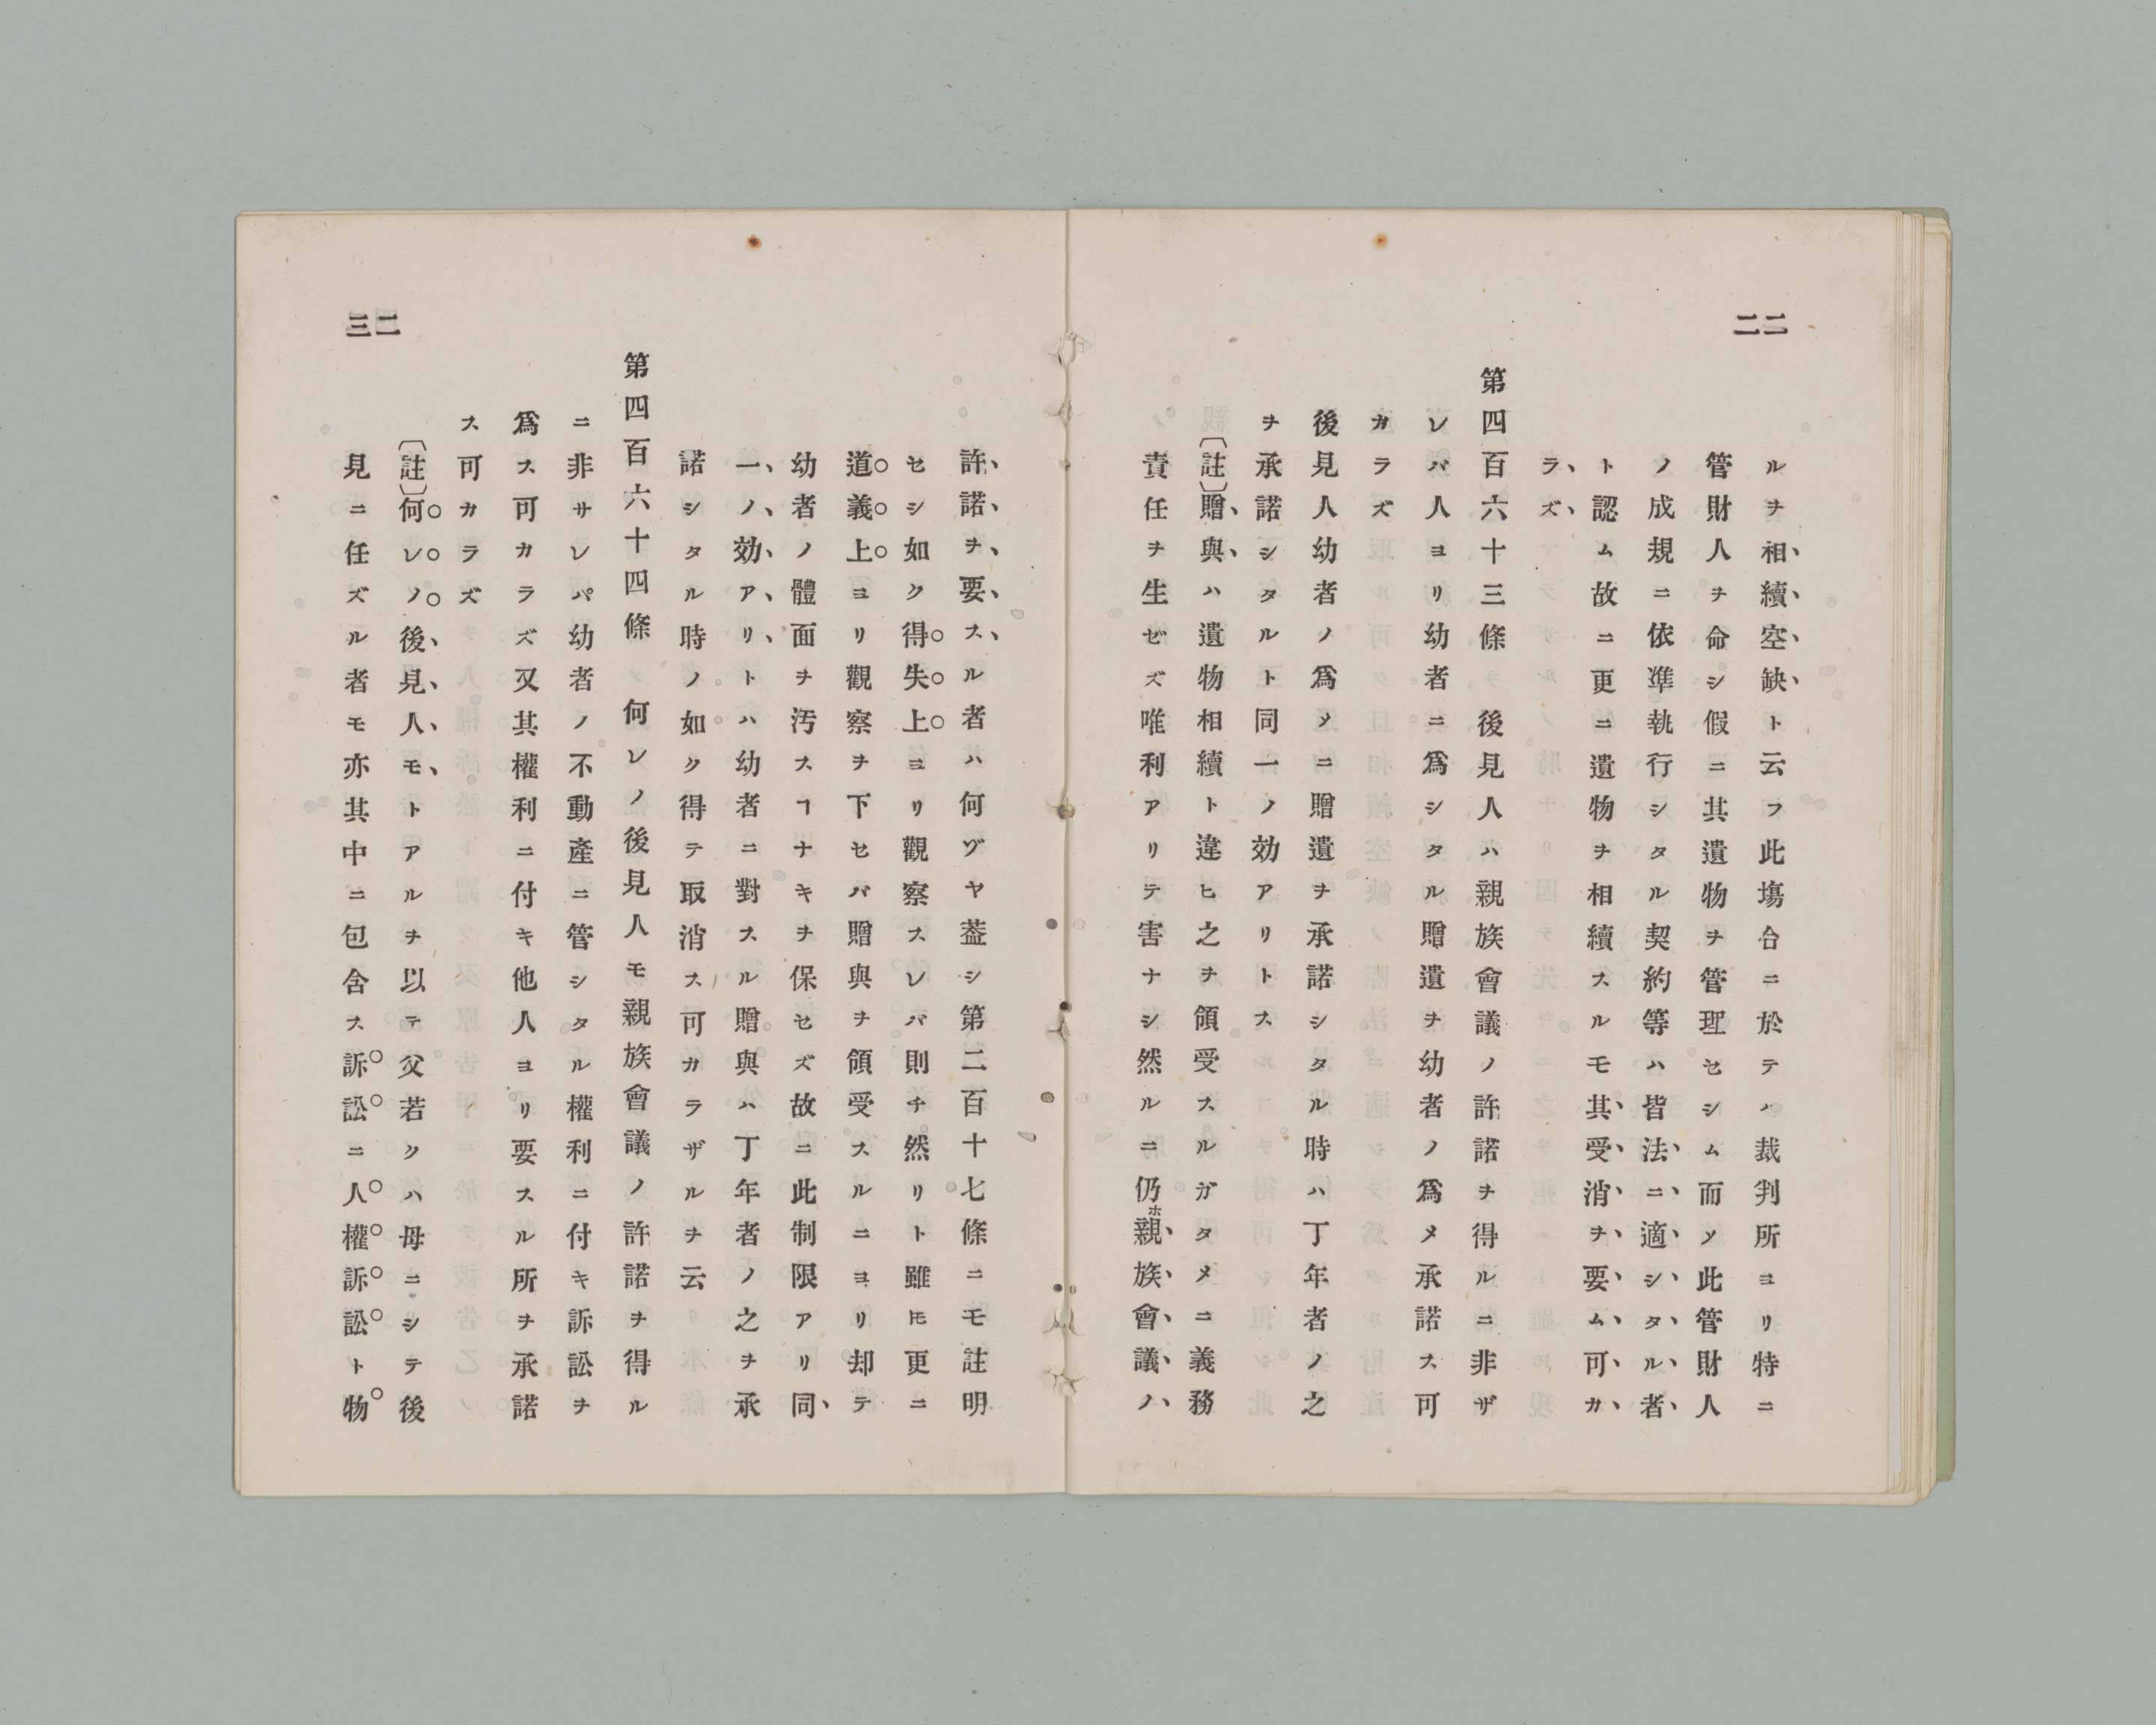 二二
ルヲ相續空缺ト云フ此塲合ニ於テハ裁判所ヨリ特ニ
管財人ヲ命シ假ニ其遺物ヲ管理セシム而ソ此管財人
ノ成規ニ依凖執行シタル契約等ハ皆法ニ適シタル者
ト認ム故ニ更ニ遺物ヲ相續スルモ其受消ヲ要ム可カ
ラズ
第四百六十三條 後見人ハ親族會議ノ許諾ヲ得ルニ非ザ
レバ人ヨリ幼者ニ爲シタル贈遺ヲ幼者ノ爲メ承諾ス可
カラズ
後見人幼者ノ爲メニ贈遺ヲ承諾シタル時ハ丁年者ノ之
ヲ承諾シタルト同一ノ効アリトス
〔註〕贈與ハ遺物相續ト違ヒ之ヲ領受スルガタメニ義務
責任ヲ生ゼズ唯利アリテ害ナシ然ルニ仍ホ親族會議ノ
許諾ヲ要スル者ハ何ヅヤ葢シ第二百十七條ニモ註明
セシ如ク得失上ヨリ觀察スレバ則チ然リト雖𪜈更ニ
道義上ヨリ觀察ヲ下セバ贈與ヲ領受スルニヨリ却テ
幼者ノ體面ヲ汚スヿナキヲ保セズ故ニ此制限アリ同
一ノ効アリトハ幼者ニ對スル贈與ハ丁年者ノ之ヲ承
諾シタル時ノ如ク得テ取消ス可カラザルヲ云
第四百六十四條 何レノ後見人モ親族會議ノ許諾ヲ得ル
ニ非サレパ幼者ノ不動產ニ管シタル權利ニ付キ訴訟ヲ
爲ス可カラズ又其權利ニ付キ他人ヨリ要スル所ヲ承諾
ス可カラズ
〔註〕何レノ後見人モトアルヲ以テ父若クハ母ニシテ後
見ニ任ズル者モ亦其中ニ包含ス訴訟ニ人權訴訟ト物
二三